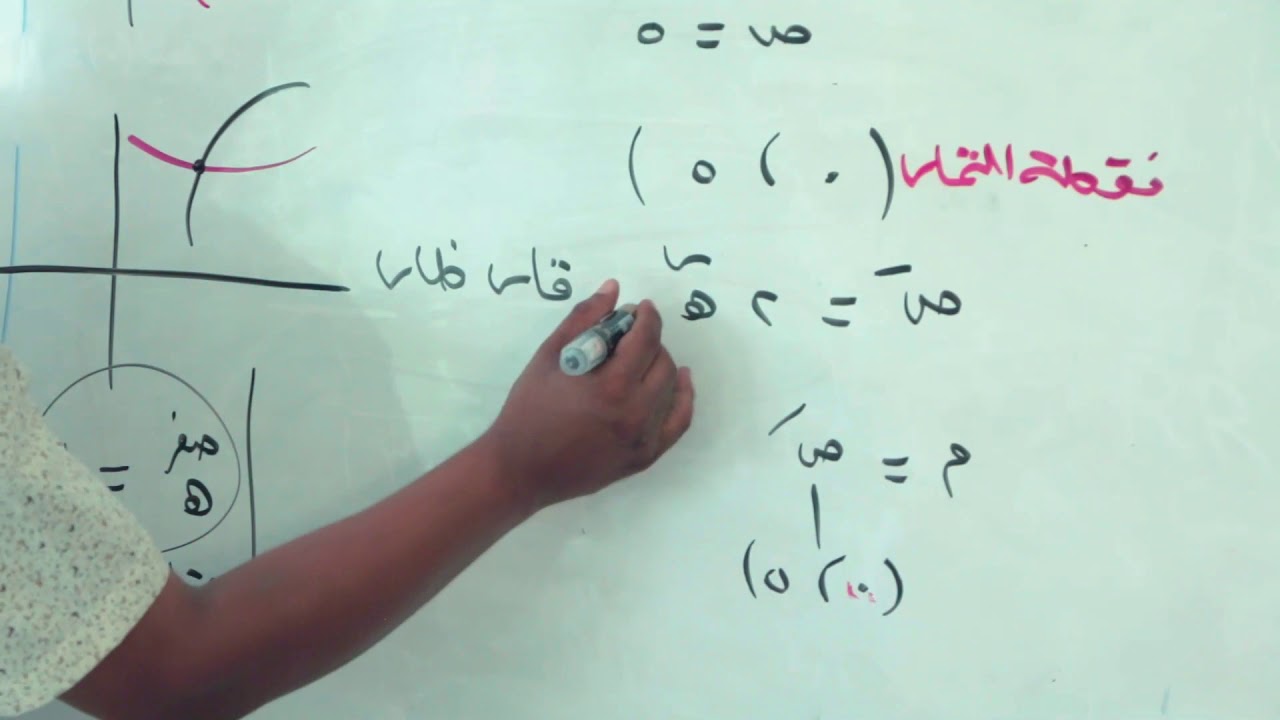 ص = ٥
نقطة التماس (٠ ، ٥)
صَ = ٢ هـ^س قاس ظاس
م = صَ
(٠ ، ٥)
هـ^صفر =